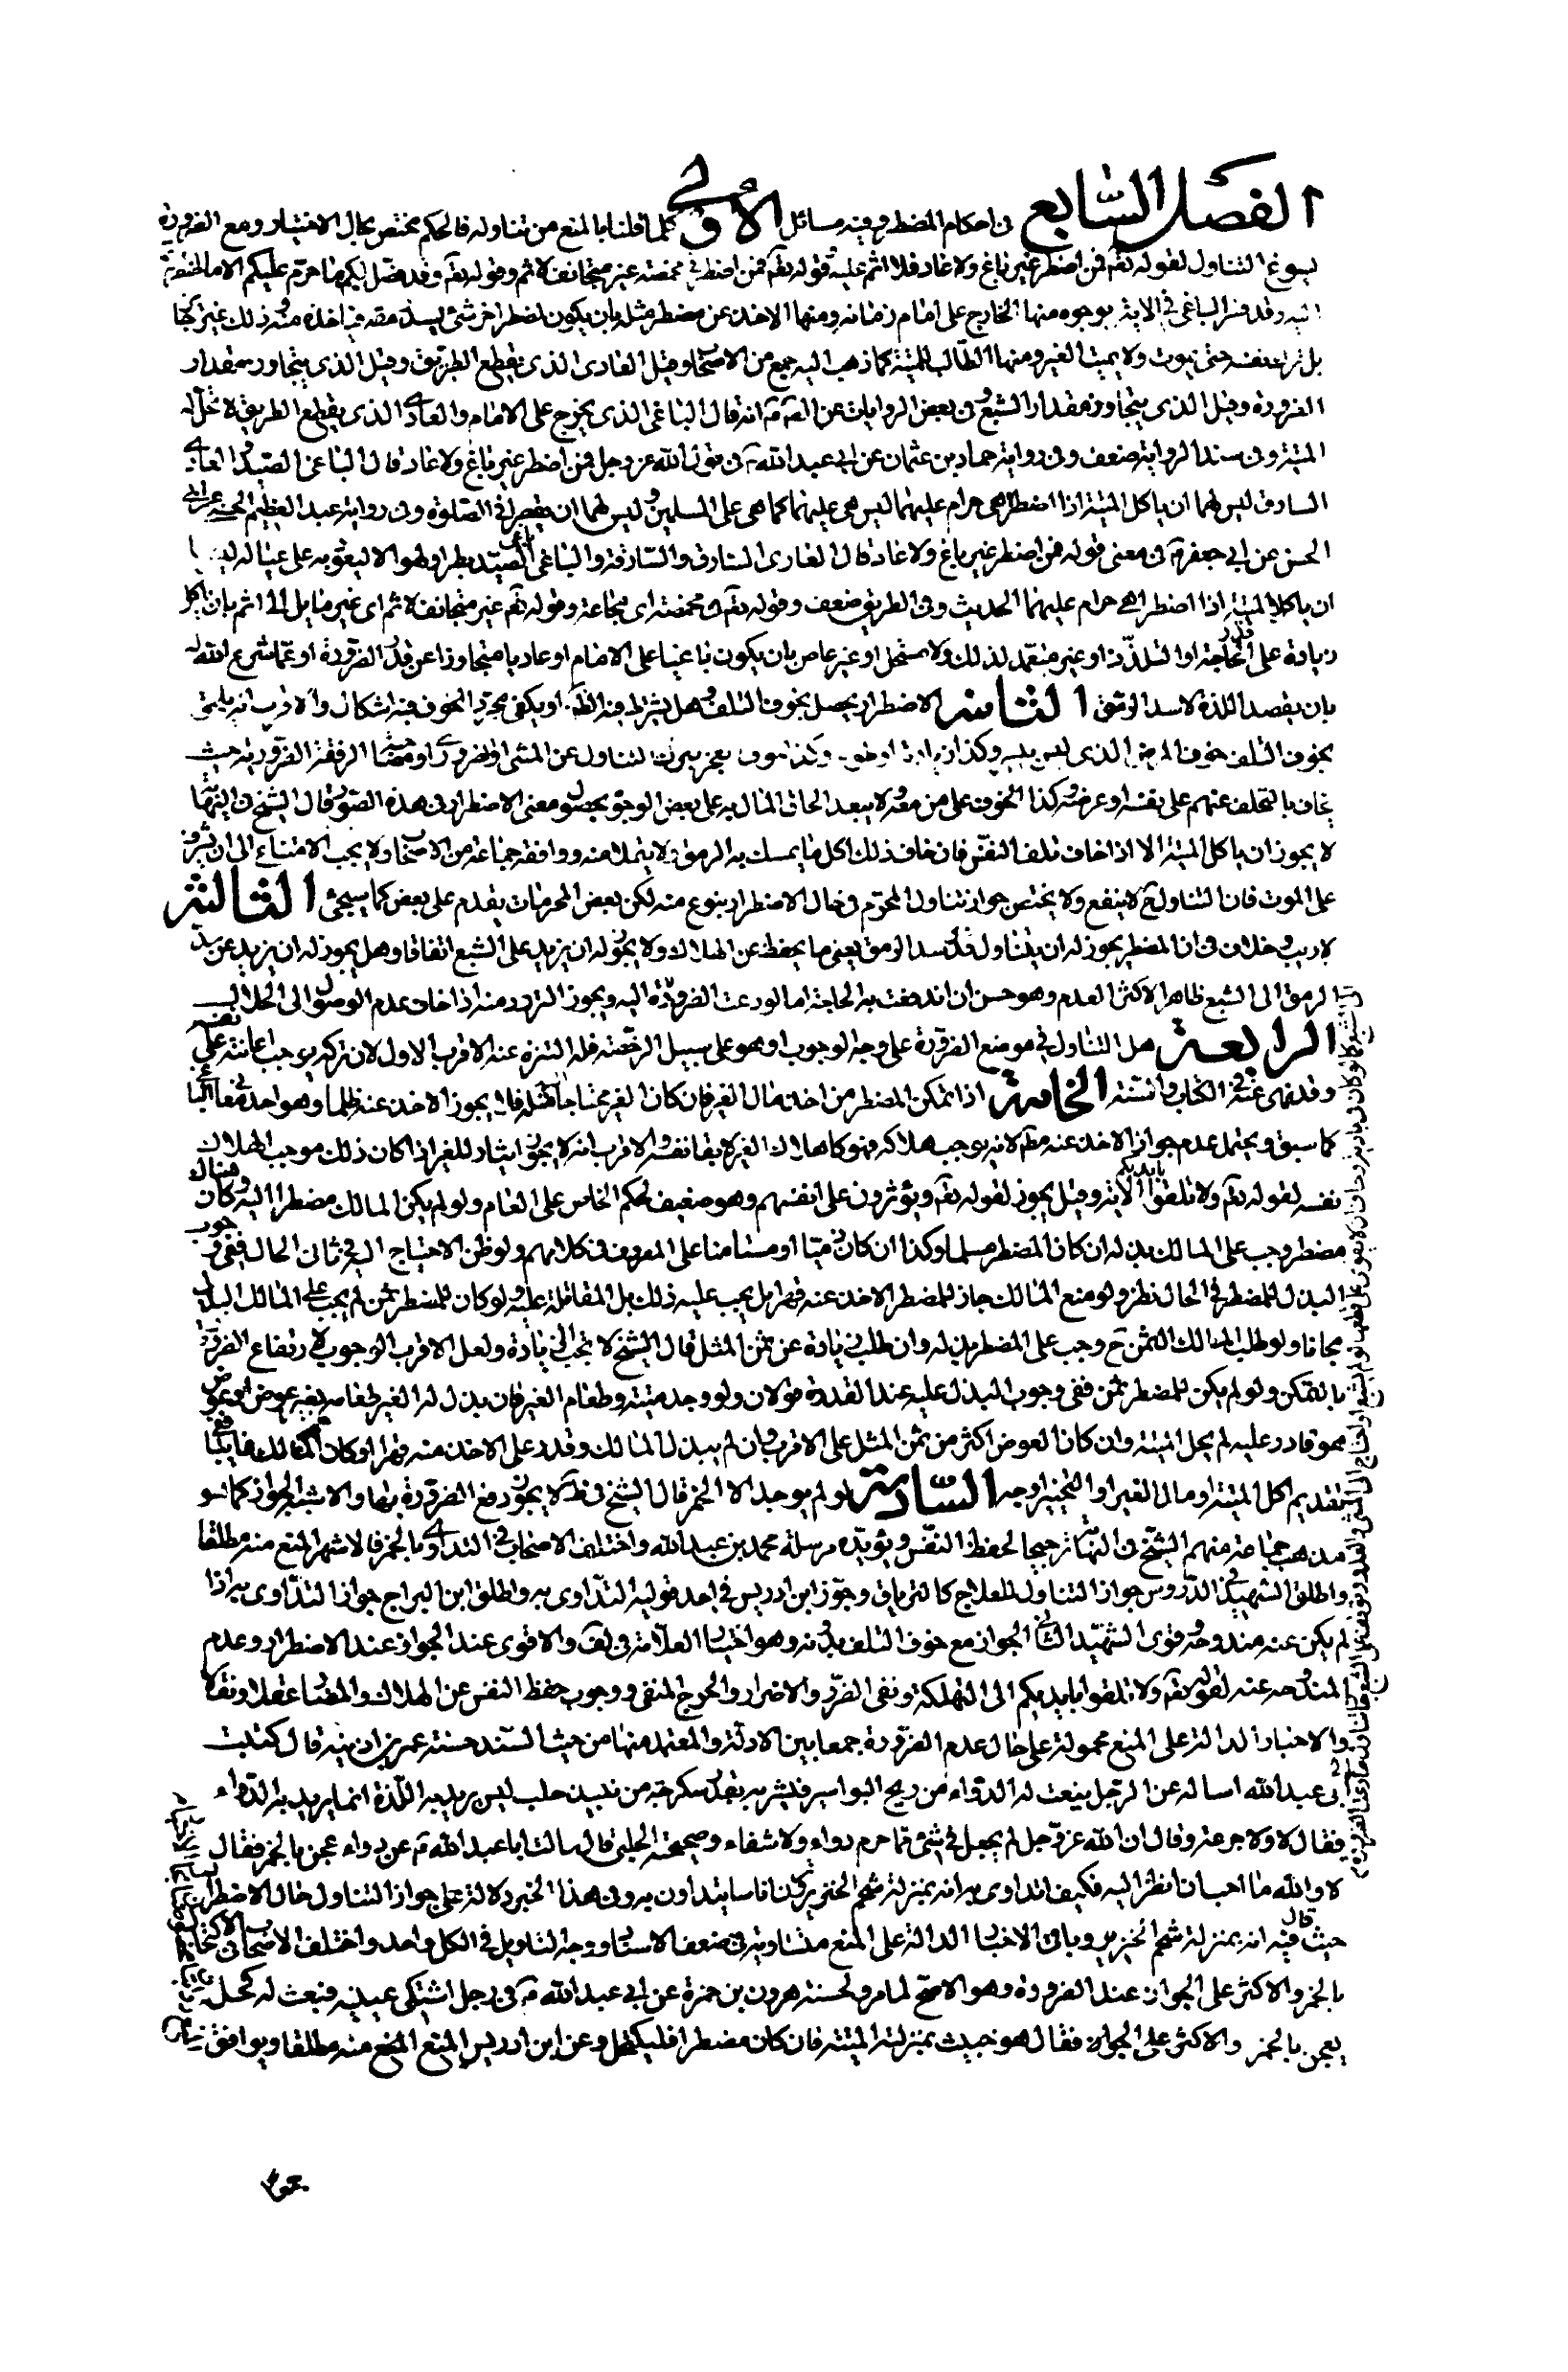 الفصل السابع في احكام المضطر وفيه مسائل الاولى كلما قلنا بالمنع من تناوله فالحكم مختص بحال الاختيار ومع الضرورة
يسوغ التناول لقوله تعم فمن اضطر غير باغ ولا عاد فلا اثم عليه وقوله تعم فمن اضطر في مخمصة غير متجانف لاثم وقوله تعم وقد فصل لكم ما حرم عليكم الا ما اضطررتم
اليه وقد فسر الباغي في الاية بوجوه منها الخارج على امام زمانه ومنها الاخذ عن مضطر مثله بان يكون لمضطر اخر شئ يسد رمقه فياخذه منه وذلك غير جائز
بل يترك نفسه حتى يموت ولا يميت الغير ومنها الطالب للميتة كما ذهب اليه جمع من الاصحاب وقيل العادى الذى يقطع الطريق وقيل الذى يتجاوز مقدار
الضرورة وقيل الذى يتجاوز مقدار الشبع وفي بعض الروايات عن الصم م انه قال الباغي الذى يخرج على الامام والعادى الذى يقطع الطريق لا تحل له
الميتة وفي سند الرواية ضعف وفي رواية حماد بن عثمان عن ابي عبد الله م في قول الله عز وجل فمن اضطر غير باغ ولا عاد قال الباغي الصيد والعادي
السارق ليس لهما ان ياكلا الميتة اذا اضطرا هي حرام عليهما ليس هي عليهما كما هي على المسلمين وليس لهما ان يقصرا في الصلوة وفي رواية عبد العظيم الحسني عن ابي
الحسن عن ابي جعفر م في معنى قوله فمن اضطر غير باغ ولا عاد قال العادى السارق والباغي الذي يبغي الصيد بطرا ولهوا لا ليعود به على عياله ليس لهما
ان ياكلا الميتة اذا اضطرا هي حرام عليهما الحديث وفي الطريق ضعف وقوله تعم في مخمصة اى مجاعة وقوله تعم غير متجانف لاثم اى غير مايل الى اثم بان ياكل
زيادة على قدر الحاجة او التلذذ او غير متعمد لذلك ولا مستحل او غير عاص بان يكون باغيا على الامام او عاديا متجاوزا عن قدر الضرورة او عما شرع الله له
بان يقصد اللذة لا سد الرمق الثانية الاضطرار يحصل بخوف التلف وهل يشترط فيه الظن او يكفي مجرد الخوف فيه اشكال والاقرب انه يلحق
بخوف التلف خوف المرض الذى ليس بيسير وكذا زيادته او طوله وكذا خوف العجز بترك التناول عن المشى الضرورى او مصاحبة الرفقة الضرورية حيث
يخاف بالتخلف عنهم على نفسه او عرضه وكذا الخوف على من معه ولا يبعد الحاق المال به على بعض الوجوه لحصول معنى الاضطرار في هذه الصور وقال الشيخ في النهاية
لا يجوز ان ياكل الميتة الا اذا خاف تلف النفس فان خاف ذلك اكل ما يمسك به الرمق ولا يتملا منه ووافقه جماعة من الاصحاب ولا يجب الامتناع الى ان يشرف
على الموت فان التناول ح لا ينفع ولا يختص جواز تناول المحرم في حال الاضطرار بنوع منه لكن بعض المحرمات يقدم على بعض كما سيجئ الثالثة
لا ريب ولا خلاف في ان المضطر يجوز له ان يتناول قدر سد الرمق يعني ما يحفظ عن الهلاك ولا يجوز له ان يزيد على الشبع اتفاقا وهل يجوز له ان يزيد عن سد
الرمق الى الشبع ظاهر الاكثر العدم وهو حسن ان اندفعت به الحاجة اما لو دعت الضرورة اليه ويجوز التزود منه اذا خاف عدم الوصول الى الحلال
الرابعة هل التناول في موضع الضرورة على وجه الوجوب او هو على سبيل الرخصة فله التنزه عنه الاقرب الاول لان تركه يوجب اعانته على نفسه
وقد نهى عنه في الكتاب والسنة الخامسة اذا تمكن المضطر من اخذ مال الغير فان كان الغير محتاجا مثله فلا يجوز الاخذ عنه ظلما وهو احد معاني الباغي
كما سبق ويحتمل عدم جواز الاخذ عنه مطم لانه يوجب هلاكه فهو كاهلاك الغير لابقا نفسه والاقرب انه لا يجوز ايثار للغير اذا كان ذلك موجب الهلاك
نفسه لقوله تعم ولا تلقوا بايديكم الاية وقيل يجوز لقوله تعم ويؤثرون على انفسهم وهو ضعيف لحكم الخاص على العام ولو لم يكن المالك مضطرا اليه وكان هناك
مضطر وجب على المالك بذله ان كان المضطر مسلما وكذا ان كان ذميا او مستامنا على المعروف في كلامهم ولو ظن الاحتياج اليه في ثاني الحال ففي وجوب
البذل للمضطر في الحال نظر ولو منع المالك جاز للمضطر الاخذ عنه قهرا بل يجب عليه ذلك بل المقاتلة عليه ولو كان للمضطر ثمن لم يجب على المالك البذل
مجانا ولو طلب المالك الثمن ح وجب على المضطر بذله وان طلب زيادة عن ثمن المثل قال الشيخ لا تجب الزيادة ولعل الاقرب الوجوب لارتفاع الضرورة
بالتمكن ولو لم يكن للمضطر ثمن ففي وجوب البذل عليه عند القدرة قولان ولو وجد ميتة وطعام الغير فان بذل له الغير طعامه بغير عوض او بعوض
هو قادر عليه لم يحل الميتة وان كان العوض اكثر من ثمن المثل على الاقرب وان لم يبذل المالك وقدر على الاخذ منه قهرا او كان المالك غايبا ففي
تقديم اكل الميتة او مال الغير او التخيير اوجه السادسة لو لم يوجد الا الخمر قال الشيخ في ط لا يجوز دفع الضرورة بها والاشبه الجواز كما هو
مذهب جماعة منهم الشيخ في النهاية ترجيحا لحفظ النفس ويؤيده مرسلة محمد بن عبد الله واختلف الاصحاب في التداوي بالخمر فالاشهر المنع منه مطلقا
واطلق الشهيد في الدروس جواز التناول للعلاج كالترياق وجوز ابن ادريس في احد قوليه التداوى به واطلق ابن البراج جواز التداوى به اذا
لم يكن عنه مندوحة وقوى الشهيد الثاني الجواز مع خوف التلف بدونه وهو اختيار العلامة في لف والاقوى عند الجواز عند الاضطرار وعدم
المندوحة عنه لقوله تعم ولا تلقوا بايديكم الى التهلكة ونفى الضرر والاضرار والحرج المنفى ووجوب حفظ النفس عن الهلاك والمضار عقلا ونقلا
والاخبار الدالة على المنع محمولة على حال عدم الضرورة جمعا بين الادلة والمعتمد منها من حيث السند حسنة عمر بن اذينة قال كتبت
الى ابي عبد الله اساله عن الرجل ينعت له الدواء من ريح البواسير فيشربه بقدر سكرجة من نبيذ صلب ليس يريد به اللذة انما يريد به الدواء
فقال لا ولا جرعة وقال ان الله عز وجل لم يجعل في شئ مما حرم دواء ولا شفاء وصحيحة الحلبي قال سالت ابا عبد الله م عن دواء عجن بالخمر فقال
لا والله ما احب ان انظر اليه فكيف اتداوى به انه بمنزلة شحم الخنزير وان اناسا يتداوون به وفي هذا الخبر دلالة على جواز التناول حال الاضطرار
حيث قال فيه انه بمنزلة شحم الخنزير وباقي الاخبار الدالة على المنع متشاركة في ضعف الاسناد ووجه التاويل في الكل واحد واختلف الاصحاب في الاكتحال
بالخمر والاكثر على الجواز عند الضرورة وهو الاصح لما مر ولحسنة هرون بن حمزة عن ابي عبد الله م في رجل اشتكى عينيه فنعت له كحل
يعجن بالخمر والاكثر على الجواز فقال هو خبيث بمنزلة الميتة فان كان مضطرا فليكتحل وعن ابن ادريس المنع المنع منه مطلقا ويوافق